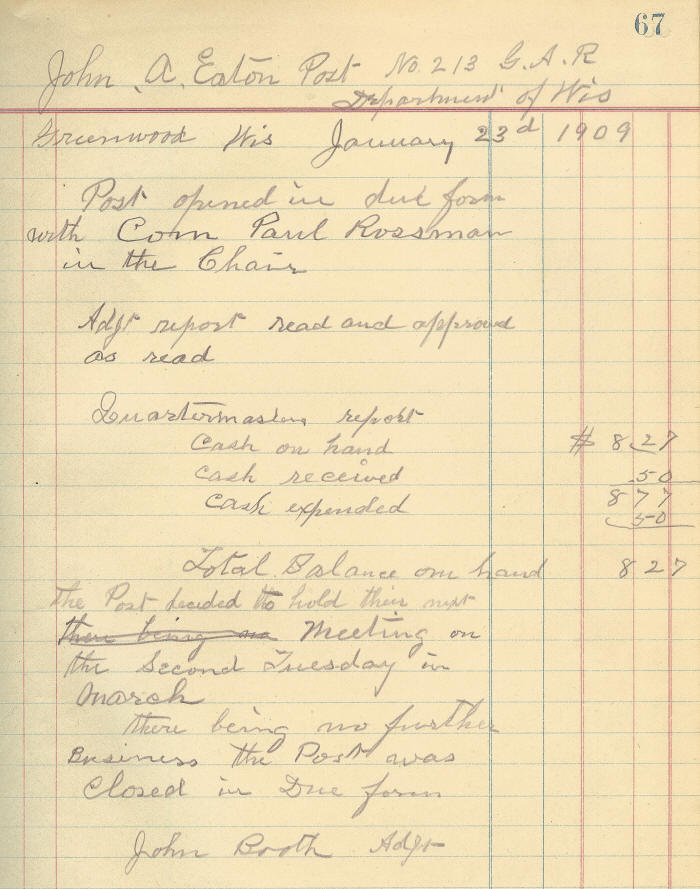 67
John A. Eaton Post No. 213 G.A.R
Department of Wis
Greenwood Wis January 23d 1909
Post opened in due form
with Com Paul Rossman
in the Chair
Adjt report read and approved
as read
Quartermasters report
Cash on hand $ 8.27
Cash received .50
8 77
Cash expended 50
Total Balance on hand 8 27
The Post decided to hold their next
there being no Meeting on
the Second Tuesday in
March
there being no further
Business the Post was
Closed in Due form
John Booth Adjt